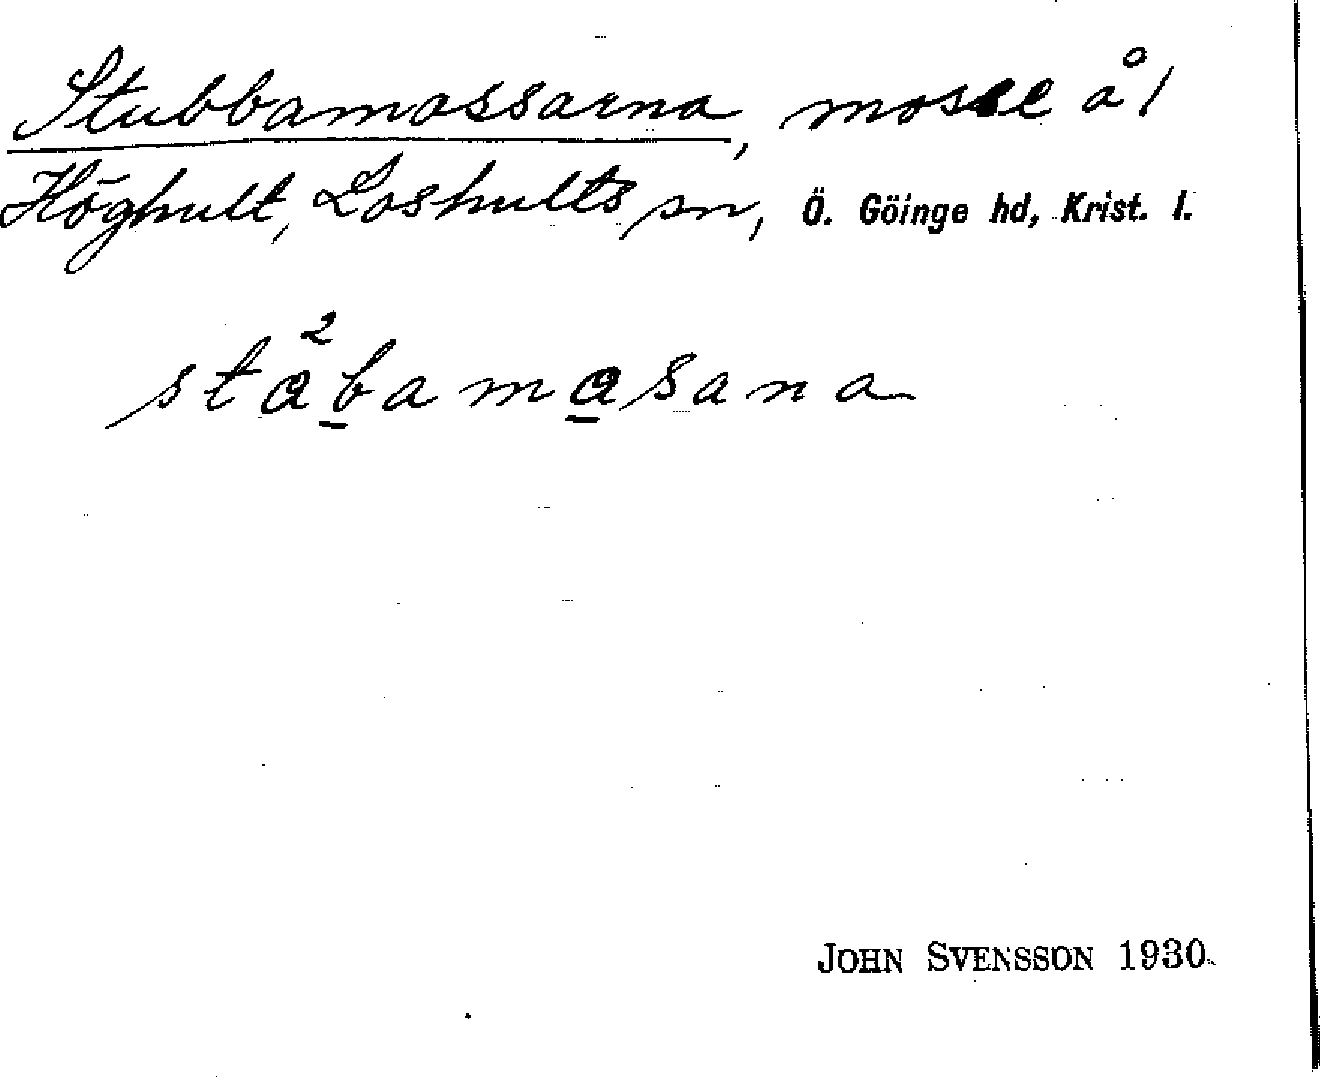 Stubbamossarna, mosse å 1
Höghult, Loshults sn, Ö. Göinge hd, Krist. l.
JOHN SVENSSON 1930.